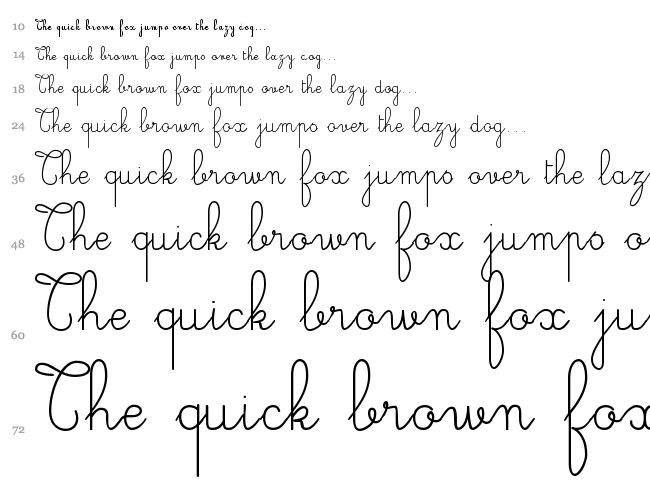 10 The quick brown fox jumps over the lazy dog...
14 The quick brown fox jumps over the lazy cog...
18 The quick brown fox jumps over the lazy dog...
24 The quick brown fox jumps over the lazy dog...
36 The quick brown fox jumps over the laz
48 The quick brown fox jumps o
60 The quick brown fox ju
72 The quick brown fox